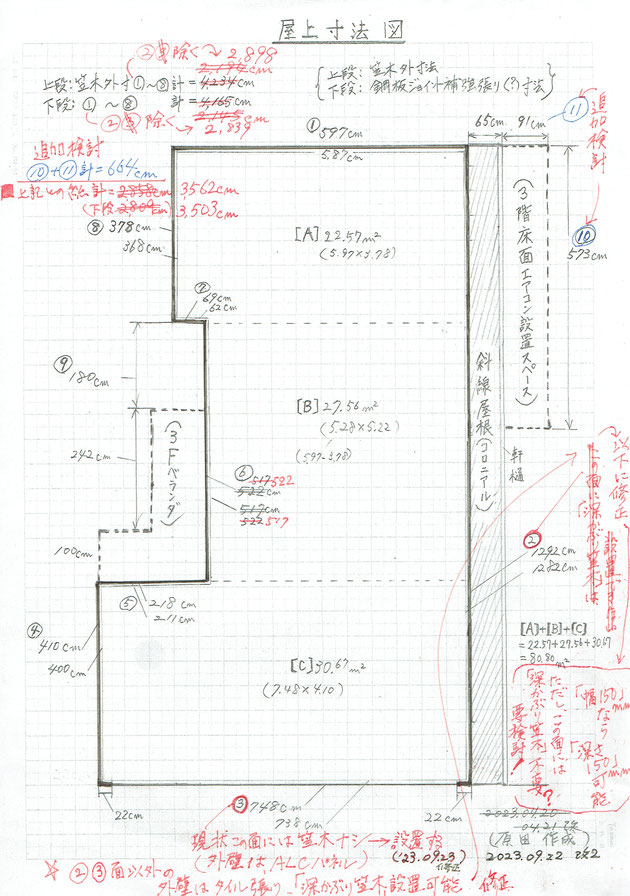 屋上寸法図
②③除く→2,898
2,194cm
上段：笠木外寸①～⑨計＝4,234cm
下段：①～⑧ 計＝4,165cm
2,145cm
②③除く→2,839
上段：笠木外寸法
下段：鋼板ジョイント補強張り(?)寸法
追加検討
⑩+⑪計＝664cm
上記との総計＝2,858cm 3,562cm
(下段2,809cm) 3,503cm
①597cm
587cm
65cm 91cm
⑪追加検討
⑩
573cm
⑧378cm
368cm
[A]22.57m²
(5.97×3.78)
(3階床面エアコン設置スペース)
⑦
69cm
62cm
⑨
180cm
242cm
100cm
(3Fベランダ)
[B]27.56m²
(5.28×5.22)
(5.97×3.78)
⑥
517 522
522cm
517cm
522 517
斜線屋根(コロニアル)
軒樋
②
1292cm
1282cm
以下に修正
この面には「深かぶり笠木」は
⑤ 218cm
211cm
④
410cm
400cm
[C]30.67m²
(7.48×4.10)
[A]+[B]+[C]
=22.57+27.56+30.67
=80.80m²
「幅150」mm
なら
「深さ150」mm
可能
ただし、この面には
「深かぶり笠木」不要？
要検討！
22cm
③748cm
738cm
22cm
現状この面には笠木ナシ→設置する
(外壁はALCパネル) ('23.09.23)修正
2023.04.20
(原田作成)
2023.09.22 改2
②③面以外の
外壁はタイル張り、「深かぶり笠木」設置可能 修正